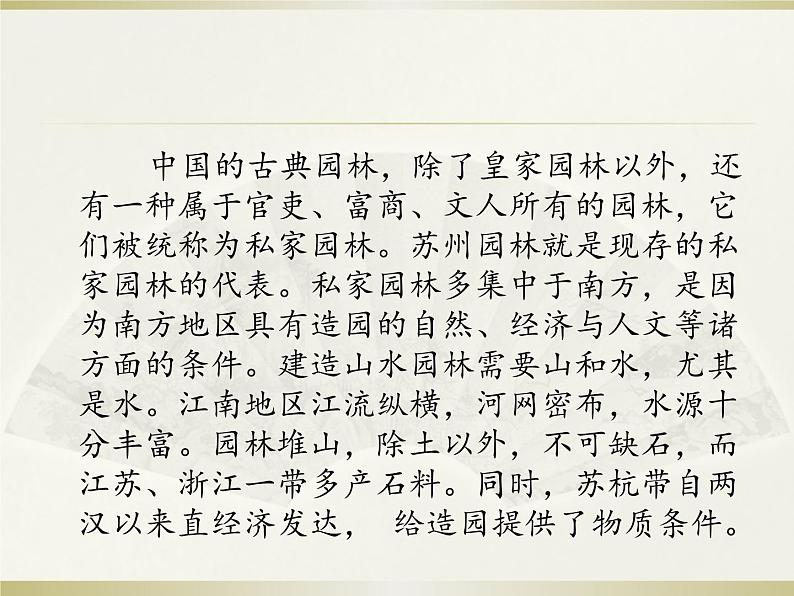 中国的古典园林，除了皇家园林以外，还
有一种属于官吏、富商、文人所有的园林，它
们被统称为私家园林。苏州园林就是现存的私
家园林的代表。私家园林多集中于南方，是因
为南方地区具有造园的自然、经济与人文等诸
方面的条件。建造山水园林需要山和水，尤其
是水。江南地区江流纵横，河网密布，水源十
分丰富。园林堆山，除土以外，不可缺石，而
江苏、浙江一带多产石料。同时，苏杭带自两
汉以来直经济发达， 给造园提供了物质条件。